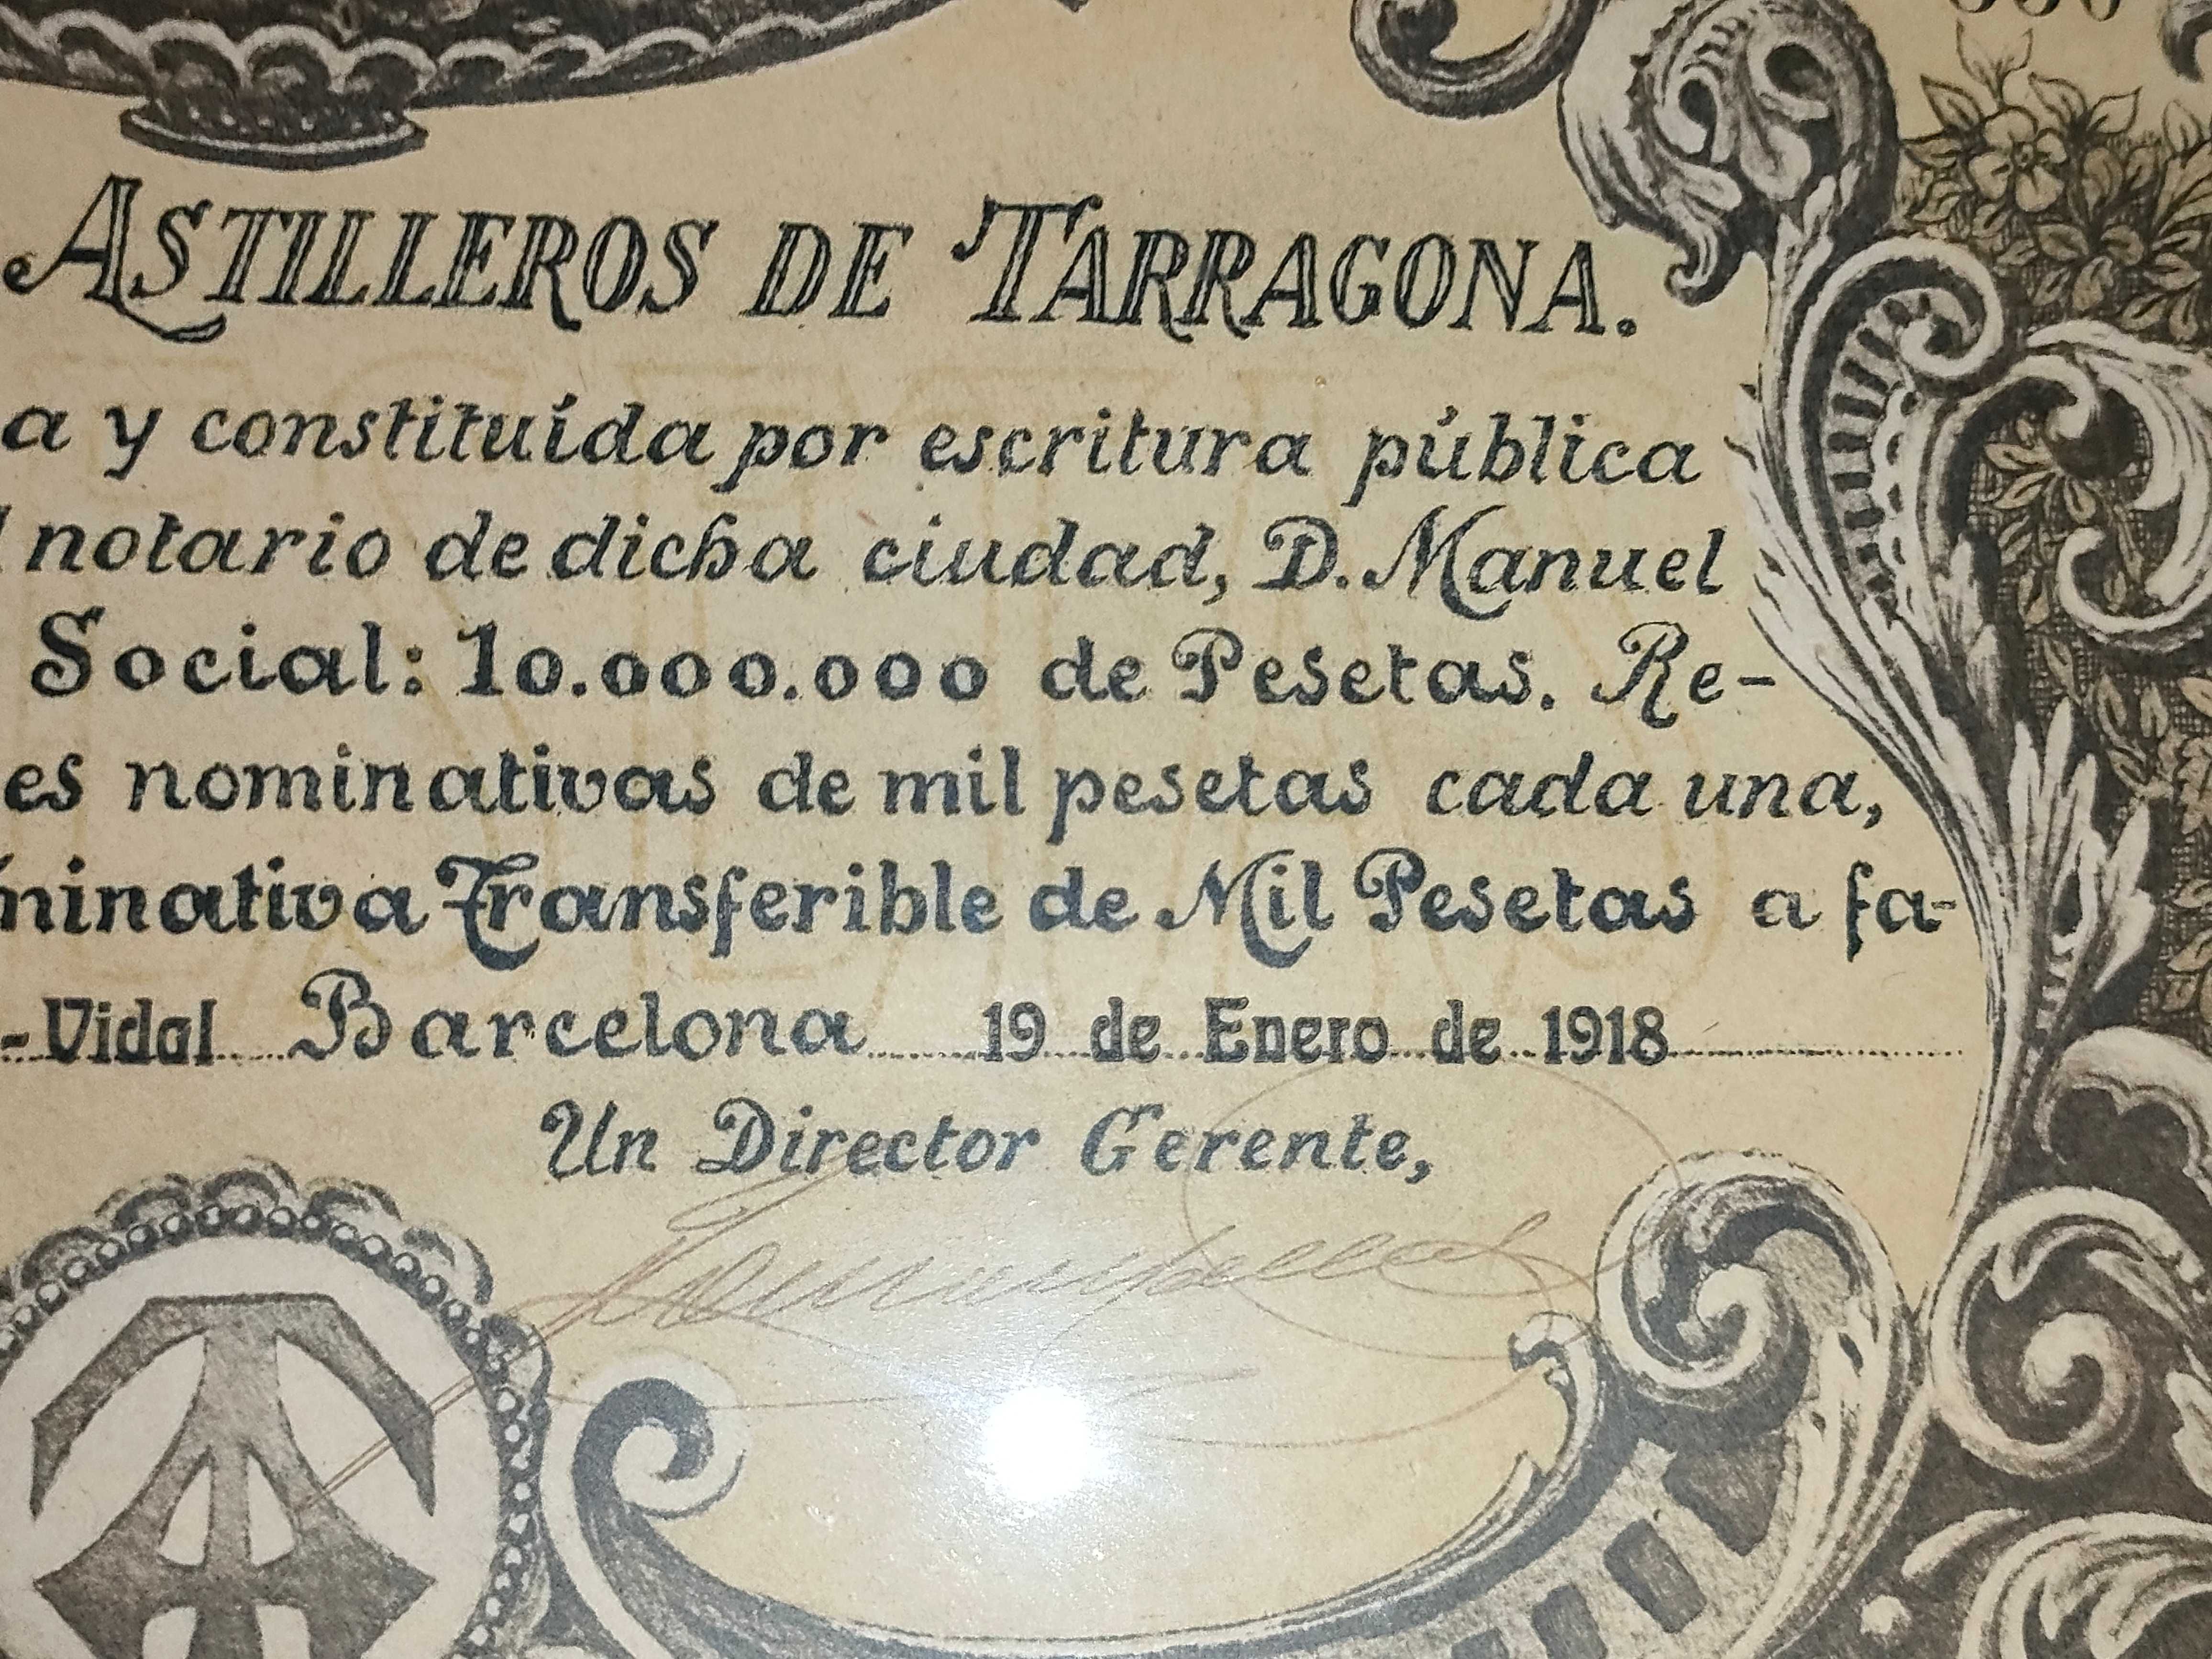 ASTILLEROS DE TARRAGONA.
a y constituída por escritura pública
notario de dicha ciudad, D. Manuel
Social: 10.000.000 de Pesetas. Re-
es nominativas de mil pesetas cada una,
minativa Transferible de Mil Pesetas a fa-
-Vidal Barcelona 19 de Enero de 1918
Un Director Gerente,